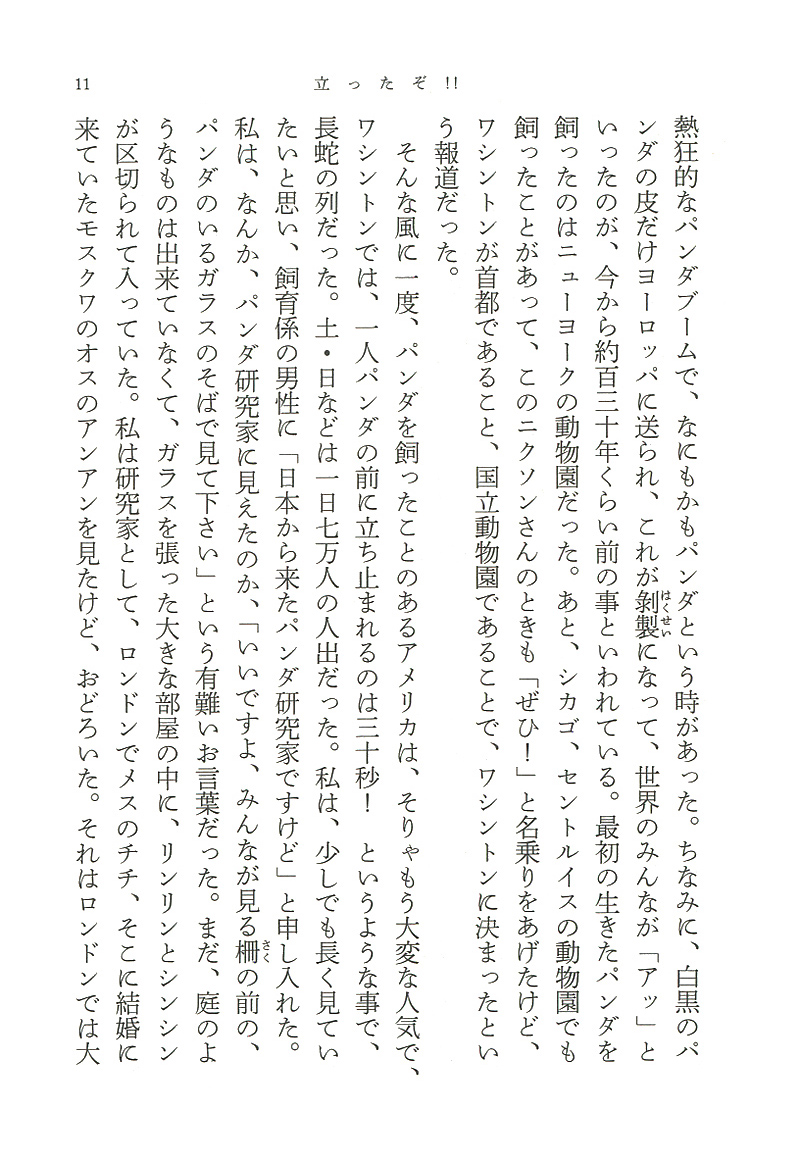 11
立ったぞ!!
熱狂的なパンダブームで、なにもかもパンダという時があった。ちなみに、白黒のパ
ンダの皮だけヨーロッパに送られ、これが剝製になって、世界のみんなが「アッ」と
はくせい
いったのが、今から約百三十年くらい前の事といわれている。最初の生きたパンダを
飼ったのはニューヨークの動物園だった。あと、シカゴ、セントルイスの動物園でも
飼ったことがあって、このニクソンさんのときも「ぜひ！」と名乗りをあげたけど、
ワシントンが首都であること、国立動物園であることで、ワシントンに決まったとい
う報道だった。
そんな風に一度、パンダを飼ったことのあるアメリカは、そりゃもう大変な人気で、
ワシントンでは、一人パンダの前に立ち止まれるのは三十秒！　というような事で、
長蛇の列だった。土・日などは一日七万人の人出だった。私は、少しでも長く見てい
たいと思い、飼育係の男性に「日本から来たパンダ研究家ですけど」と申し入れた。
私は、なんか、パンダ研究家に見えたのか、「いいですよ、みんなが見る柵の前の、
さく
パンダのいるガラスのそばで見て下さい」という有難いお言葉だった。まだ、庭のよ
うなものは出来ていなくて、ガラスを張った大きな部屋の中に、リンリンとシンシン
が区切られて入っていた。私は研究家として、ロンドンでメスのチチ、そこに結婚に
来ていたモスクワのオスのアンアンを見たけど、おどろいた。それはロンドンでは大